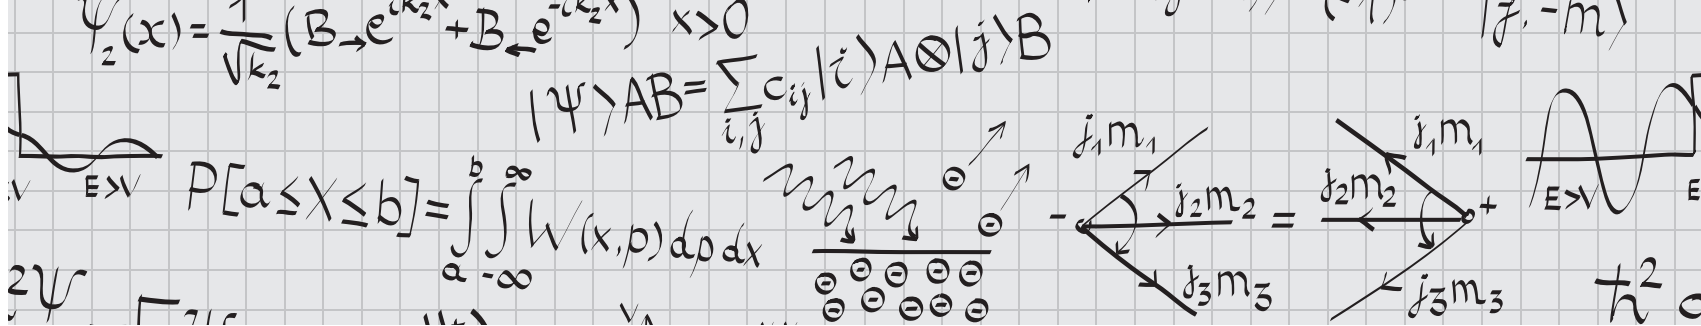 Ψ₂(x) = 1/√k₂ (B→e^{ik₂x} + B←e^{-ik₂x}) x>0
|j, -m⟩
|Ψ⟩AB = ∑_{i,j} c_{ij} |i⟩A⊗|j⟩B
V E>V
P[a≤X≤b] = ∫_a^b ∫_{-∞}^{∞} W(x,p) dp dx
⊖
⊖
⊖ ⊖ ⊖ ⊖ ⊖
⊖ ⊖ ⊖ ⊖ ⊖
j₁m₁
- j₂m₂ =
j₃m₃
j₁m₁
j₂m₂ +
j₃m₃
E>V E
²Ψ
ħ²